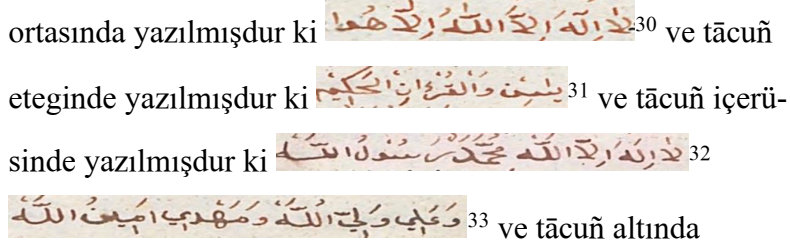 ortasında yazılmışdur ki لا اِلٰهَ اِلاَّ اللّٰهُ اِلاَّ هُوا 30 ve tācuñ
eteginde yazılmışdur ki يٰسٓ وَالْقُرْاٰنِ الْحَكِيمِ 31 ve tācuñ içerü-
sinde yazılmışdur ki لا اِلٰهَ اِلاَّ اللّٰه مُحَمَّدْ رَسُولُ اللّٰه 32
وَ عَلِي وَلِيّ اللّٰه وَ مَهْدِي اَمِينُ اللّٰه 33 ve tācuñ altında